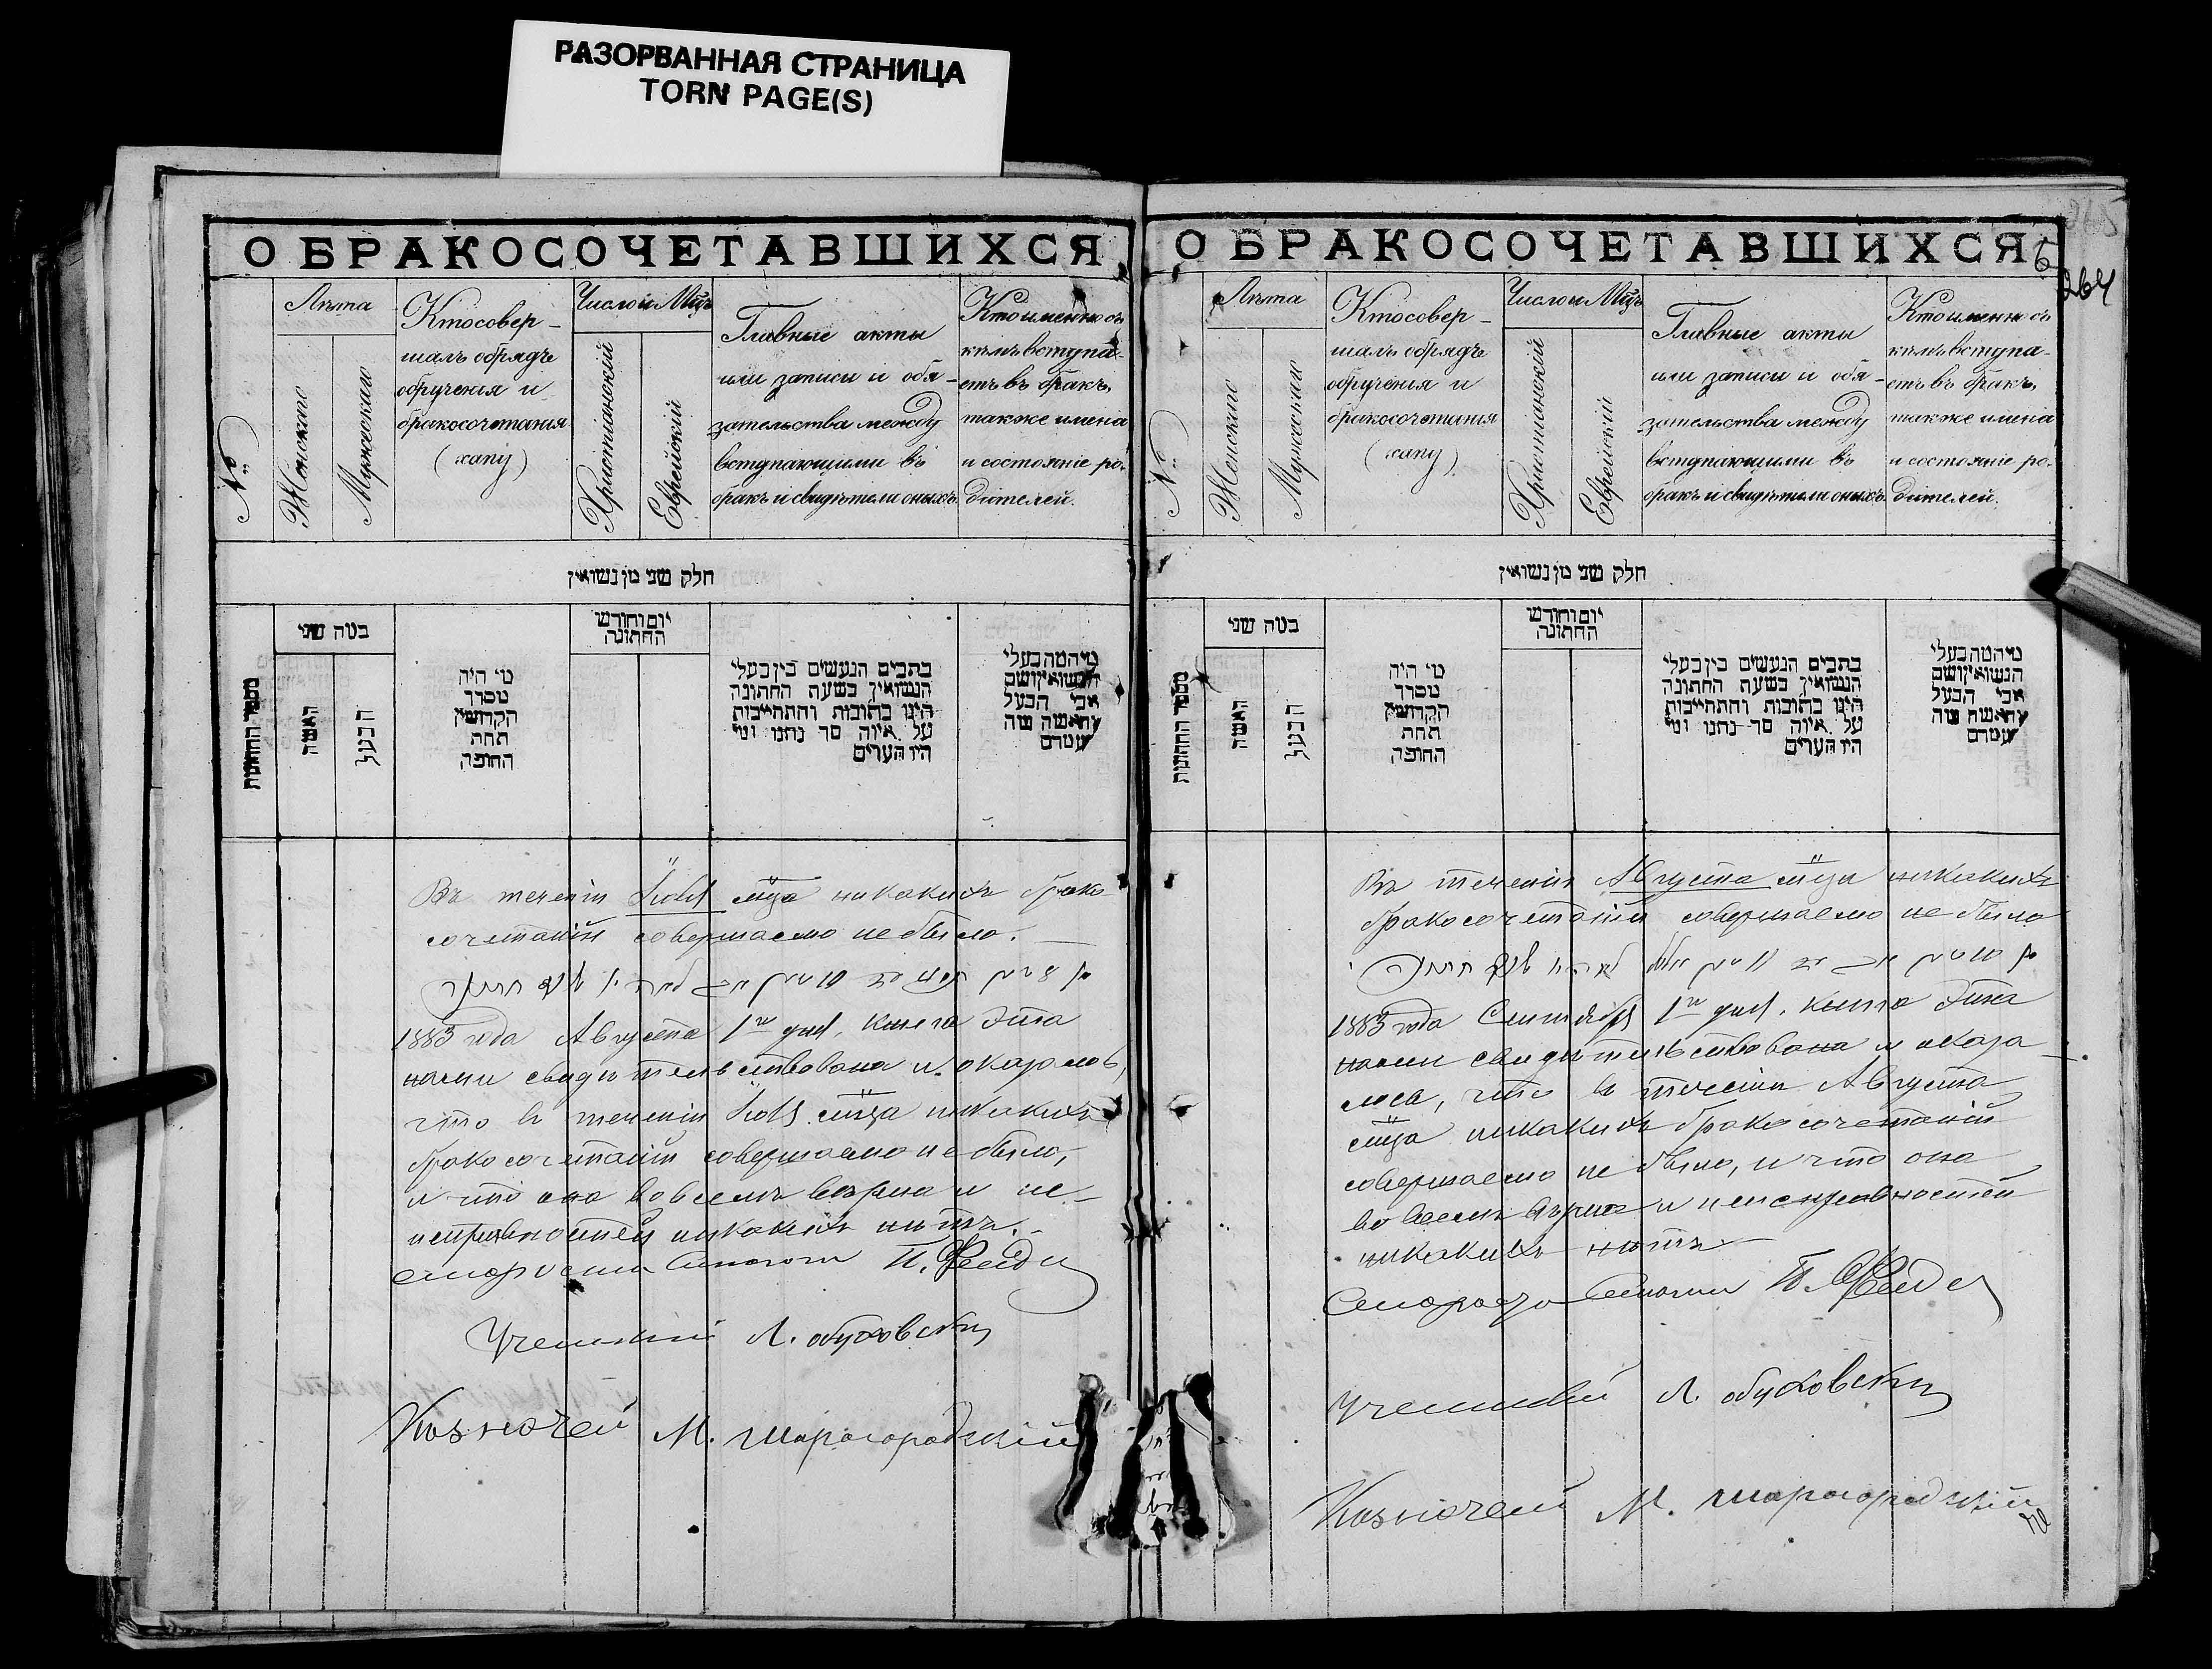 РАЗОРВАННАЯ СТРАНИЦА
TORN PAGE(S)
О БРАКОСОЧЕТАВШИХСЯ
№
Лѣта
Женскаго
Мужескаго
Кто совер-
шалъ обрядъ
обрученія и
бракосочетанія
(хапу)
Число и Мцъ
Христіанскій
Еврейскій
Главные акты
или записи и обя-
зательства между
вступающими въ
бракъ и свидѣтели оныхъ.
Кто именно съ
кѣмъ вступа-
етъ въ бракъ,
также имена
и состояніе ро-
дителей.
חלק שני מן נשואין
מספר החתונות
במה שני
האשה
הבעל
מי היה
מסדר
הקדושין
תחת
החופה
יום וחודש
החתונה
כתבים הנעשים בין בעלי
הנשואין בשעת החתונה
היינו כתובות והתחייבות
על איזה סך נתנו ומי
היו הערים
מי המה בעלי
הנשואין ושם
אבי הבעל
והאשה ומה
מעמדם
Въ теченіи Іюля мца никакихъ брако
сочетаній совершаемо не было.
1883 года Августа 1го дня, книга эта
нами свидѣтельствована и оказалось,
что въ теченіи Іюля мца никакихъ
бракосочетаній совершаемо не было,
и что она во всемъ вѣрна и не-
исправностей никакихъ нѣтъ.
Староста Синагоги П.
Ученый Л. Обуховскій
Казначей М. Шарогородскій
О БРАКОСОЧЕТАВШИХСЯ
6
264
№
Лѣта
Женскаго
Мужескаго
Кто совер-
шалъ обрядъ
обрученія и
бракосочетанія
(хапу)
Число и Мцъ
Христіанскій
Еврейскій
Главные акты
или записи и обя-
зательства между
вступающими въ
бракъ и свидѣтели оныхъ.
Кто именно съ
кѣмъ вступа-
етъ въ бракъ,
также имена
и состояніе ро-
дителей.
חלק שני מן נשואין
מספר החתונות
במה שני
האשה
הבעל
מי היה
מסדר
הקדושין
תחת
החופה
יום וחודש
החתונה
כתבים הנעשים בין בעלי
הנשואין בשעת החתונה
היינו כתובות והתחייבות
על איזה סך נתנו ומי
היו הערים
מי המה בעלי
הנשואין ושם
אבי הבעל
והאשה ומה
מעמדם
Въ теченіи Августа мца никакихъ
бракосочетаній совершаемо не было
1883 года Сентября 1го дня, книга эта
нами свидѣтельствована и оказа-
лось, что въ теченіи Августа
мца никакихъ бракосочетаній
совершаемо не было, и что она
во всемъ вѣрна и неисправностей
никакихъ нѣтъ
Староста Синагоги П.
Ученый Л. Обуховскій
Казначей М. Шарогородскій